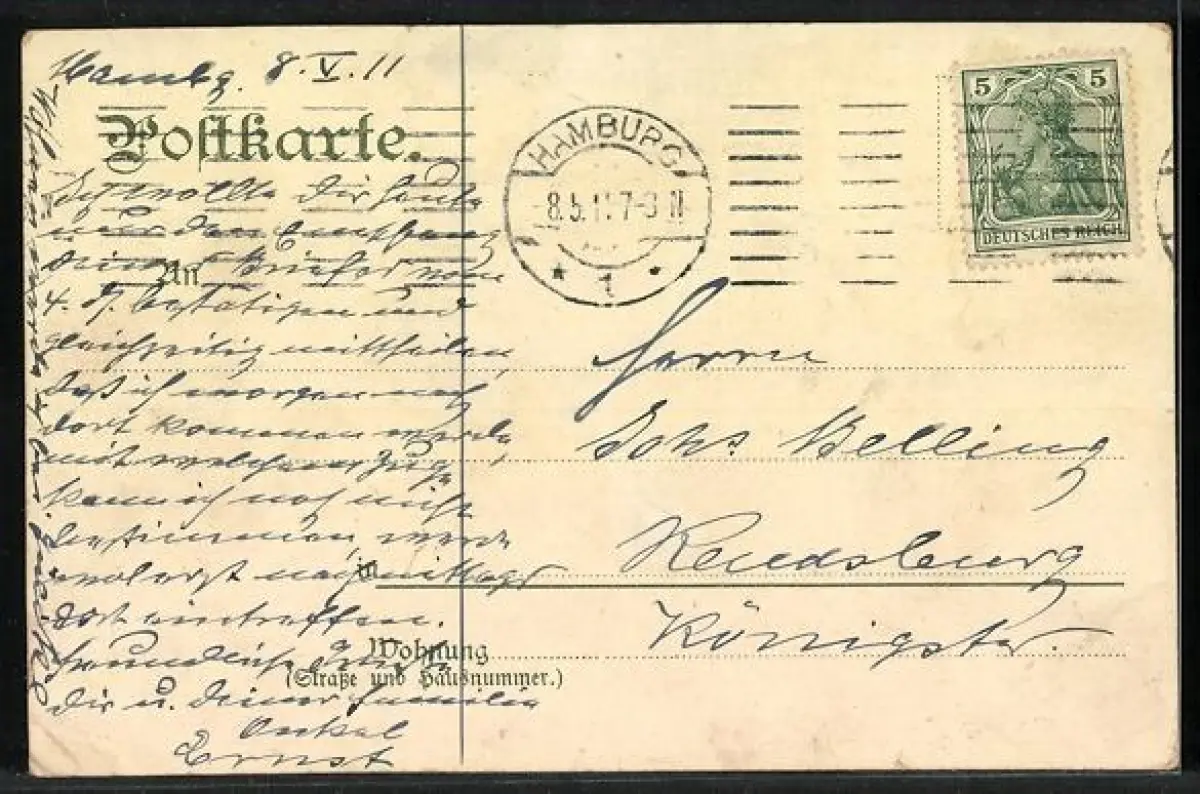 Hambg. 8.V.11
Postkarte.
Ich wollte Dir heute
nur den Empfang
deines Briefes vom
An
4. d. bestätigen und
gleichzeitig mittheilen,
daß ich morgen nach
dort kommen werde,
mit welchem Zuge
kann ich noch nicht
bestimmen, werde
wol erst nachmittags
dort eintreffen.
Freundliche Grüße
Dir u. deiner Familie
Onkel
Ernst
HAMBURG
8.5.11 7-8 N
* 1 *
5 5
DEUTSCHES REICH
Herrn
Johs Belling
in
Rendsburg
Königstr.
Wohnung
(Straße und Hausnummer.)